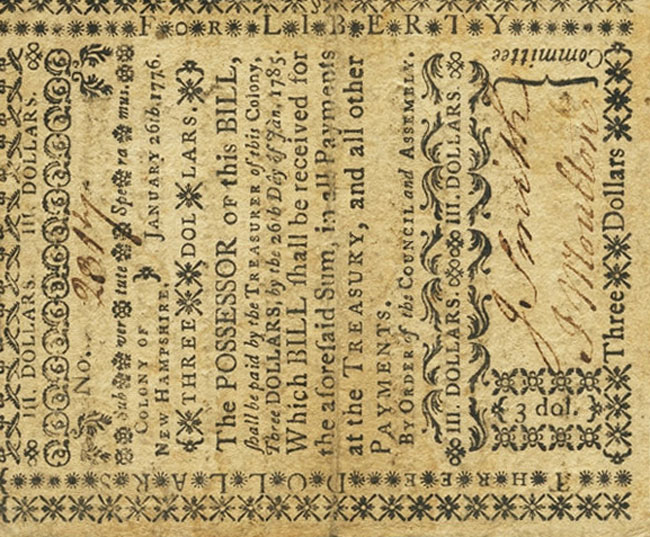 For LIBERTY
III. DOLLARS. III. DOLLARS.
No.
Sub ver tute Spe ra mus.
COLONY OF
NEW HAMPSHIRE, } JANUARY 26th, 1776.
THREE DOL LARS.
The POSSESSOR of this BILL,
ſhall be paid by the TREASURER of this Colony,
Three DOLLARS by the 26th Day of Jan. 1785.
Which BILL ſhall be received for
the aforeſaid Sum, in all Payments
at the TREASURY, and all other
PAYMENTS.
By ORDER of the COUNCIL and ASSEMBLY.
III. DOLLARS. III. DOLLARS.
3 dol.
J Smith
J Moulton
Committee
Three Dollars
THREE DOLLARS